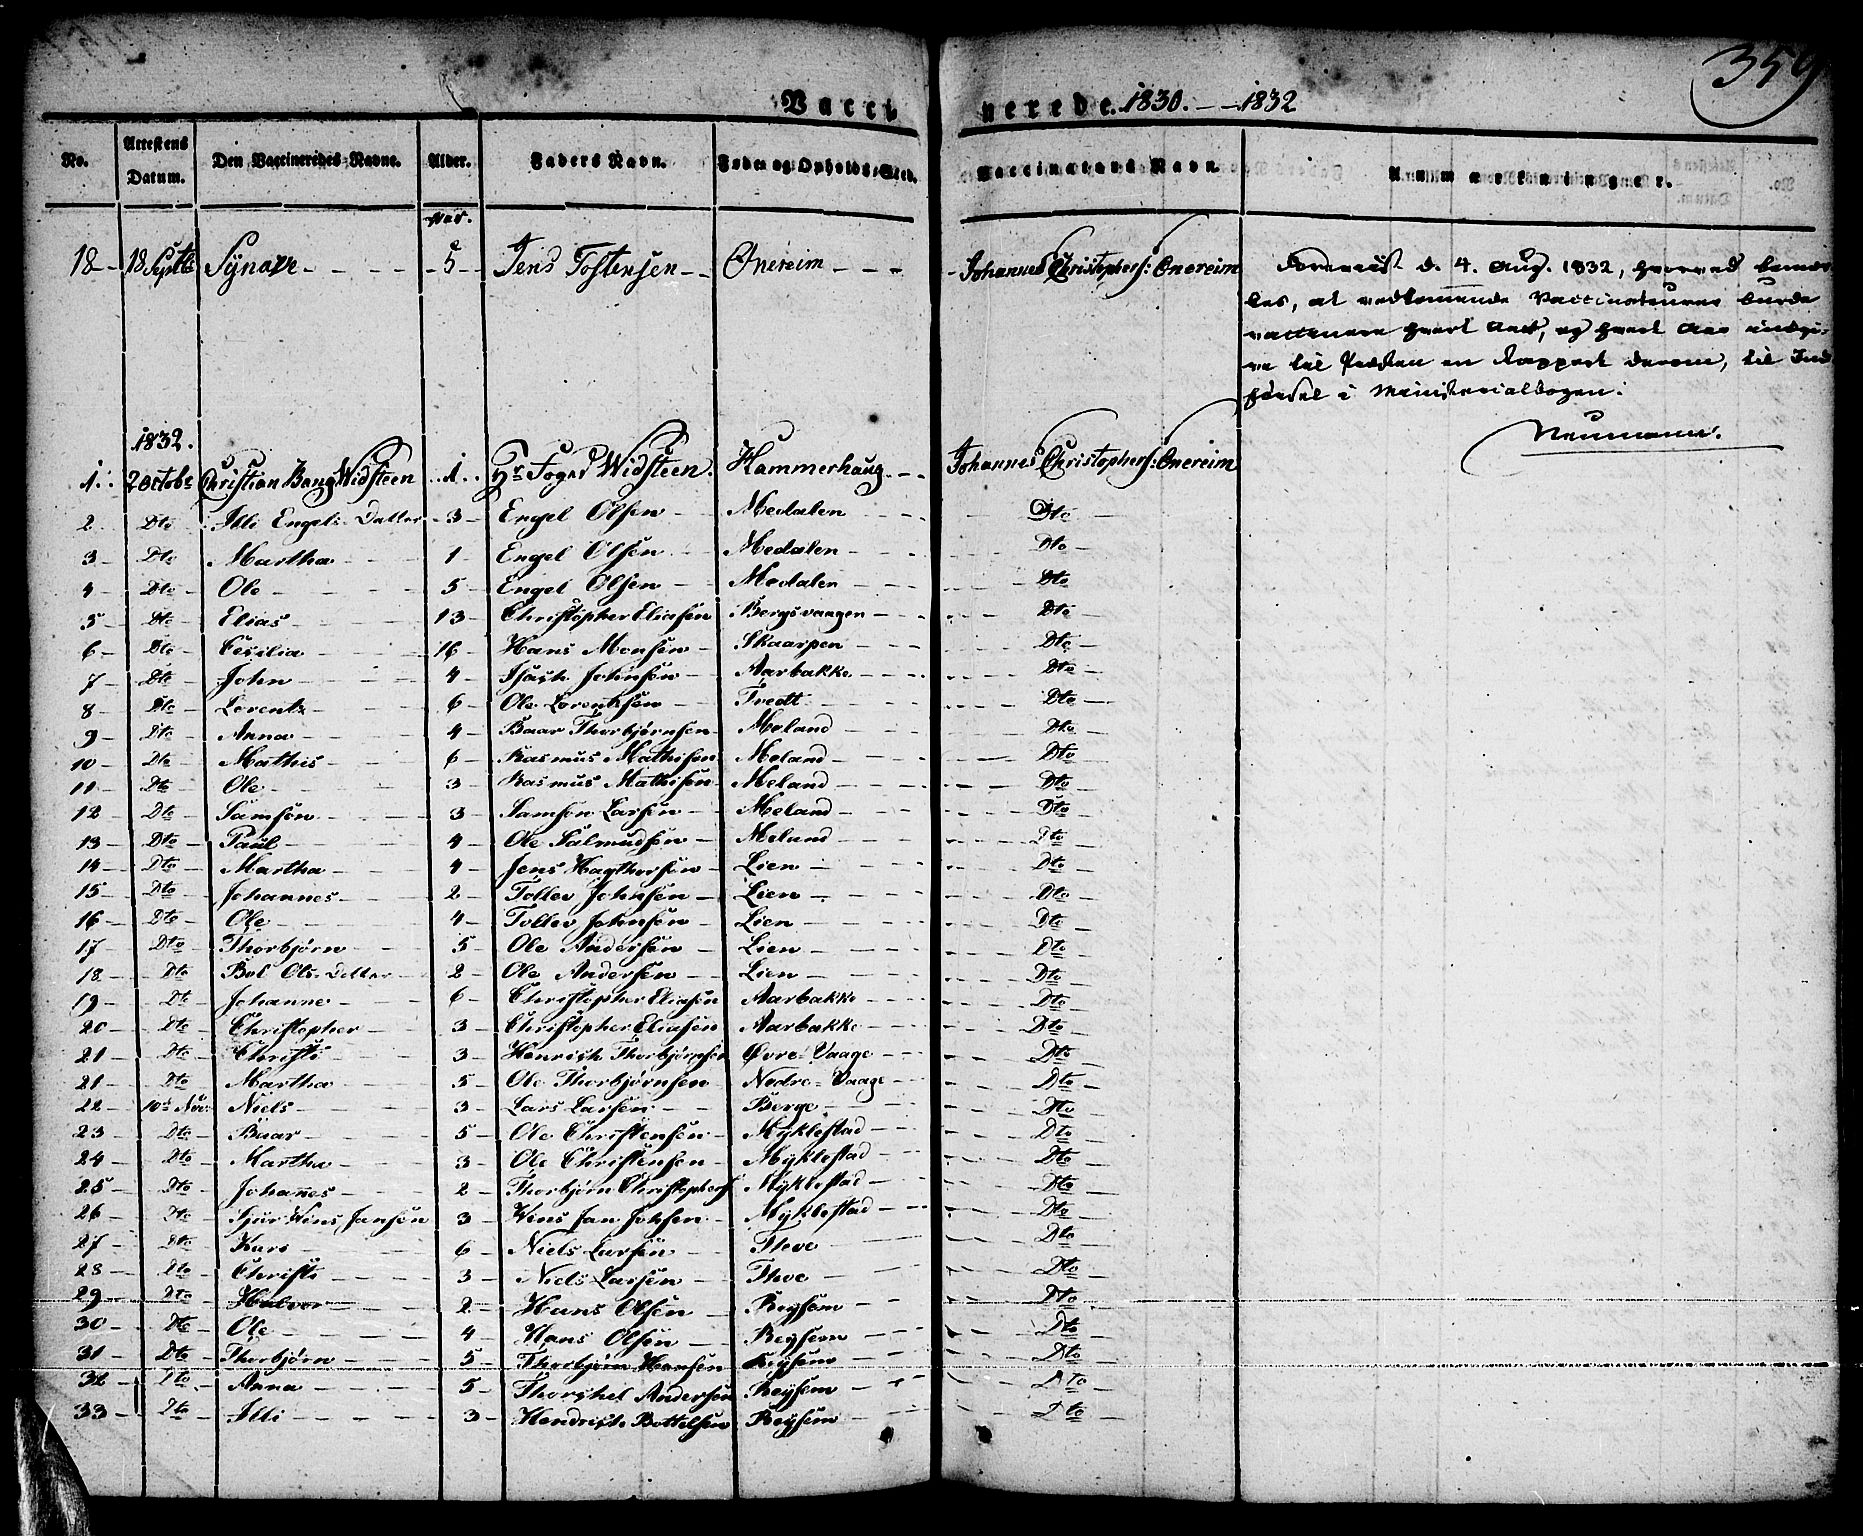 359
Vaccinerede. 1830. — 1832
No. | Attestens Datum. | Den Vaccineredes Navne. | Alder. | Faders Navn. | Føde- og Opholds-Sted. | Vaccinateurs Navn | Anmærkninger.
Aar.
18 — 18 Septbr Synave — 5 — Jens Tostensen — Onereim — Johannes Christophers: Onereim
Foreviist d. 4. Aug. 1832, hvorved bemær-
kes, at vedkommende Vaccinateurer burde
vaccinere hvert Aar, og hvert Aar indgi-
ve til Præsten en Rapport derom, til Ind-
førsel i Ministerialbogen.
Neumann.
1832.
1. 2 Octobr Christian Bang Widsteen 1. Hr Foged Widsteen. Hammerhaug — Johannes Christophers: Onereim
2 Dto Illi Engels Datter 3 — Engel Olsen — Medalen — Dto
3 — Dto Martha — 1 — Engel Olsen — Medalen — Dto
4 — Dto Ole — 5 — Engel Olsen — Medalen — Dto
5 — Dto Elias — 13 — Christopher Eliasen Bergsvaagen — Dto
6 — Dto Cesilia — 16 — Hans Monsen — Skaarpen — Dto
7 — Dto John — 4 — Isach Johnsen — Aarbakke — Dto
8 — Dto Lorents — 6 — Ole Lorentsen — Tvedt — Dto
9 — Dto Anna — 4 — Baar Thorbjørnsen — Meland — Dto
10 — Dto Mathis — 6 — Rasmus Mathisen Meland — Dto
11 — Dto Ole — 3 — Rasmus Mathisen Meland — Dto
12 — Dto Samson — 3 — Samson Larsen — Meland — Dto
13 — Dto Paul — 4 — Ole Salmundsen — Meland — Dto
14 — Dto Martha — 4 — Jens Hagthorsen — Lien — Dto
15 — Dto Johannes — 2 — Tollev Johnsen — Lien — Dto
16 — Dto Ole — 4 — Tollev Johnsen — Lien — Dto
17 — Dto Thorbjørn — 5 — Ole Andersen — Lien — Dto
18 — Dto Bol Ols: Datter — 2 — Ole Andersen — Lien — Dto
19 — Dto Johanne — 6 — Christopher Eliasen Aarbakke — Dto
20 — Dto Christopher — 3 — Christopher Eliasen Aarbakke — Dto
21 — Dto Christi — 3 — Henrich Thorbjørnsen Øvre-Vaage — Dto
21 — Dto Martha — 5 — Ole Thorbjørnsen — Nedre-Vaage — Dto
22 — 10de Nov: Niels — 3 — Lars Larsen — Berge — Dto
23 — Dto Baar — 5 — Ole Christensen — Myklestad — Dto
24 — Dto Martha — 3 — Ole Christensen — Myklestad — Dto
25 — Dto Johannes — 2 — Thorbjørn Christophers Myklestad — Dto
26 — Dto Sjur Wins Jansen 3 — Wins Jan Johsen — Myklestad — Dto
27 — Dto Kari — 6 — Niels Larsen — Thoe — Dto
28 — Dto Christi — 3 — Niels Larsen — Thoe — Dto
29 — Dto Halvor — 2 — Hans Olsen — Reysem — Dto
30 — Dto Ole — 4 — Hans Olsen — Reysem — Dto
31 — Dto Thorbjørn — 5 — Thorbjørn Hansen Reysem — Dto
32 — Dto Anna — 5 — Thorchel Andersen Reysem — Dto
33 — Dto Illi — 3 — Hendrich Bottelsen Reysem — Dto